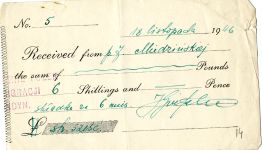 No. 5
18 listopada 1946
Received from p. J. Miedzinskiej
the sum of Pounds
6 Shillings and Pence
składka za 6 mies.
£ sh. sześć
74